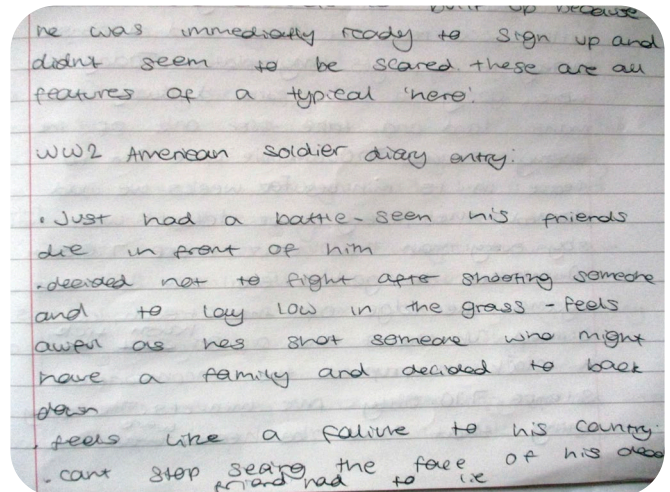 built up because
he was immediatly ready to sign up and
didnt seem to be scared. these are all
features of a typical 'hero'.
WW2 American soldier diary entry:
• Just had a battle - seen his friends
die in front of him
• decided not to fight after shooting someone
and to lay low in the grass - feels
awful as hes shot someone who might
have a family and decided to back
down
• feels like a failure to his country.
• cant stop seeing the face of his dead
friend had to lie